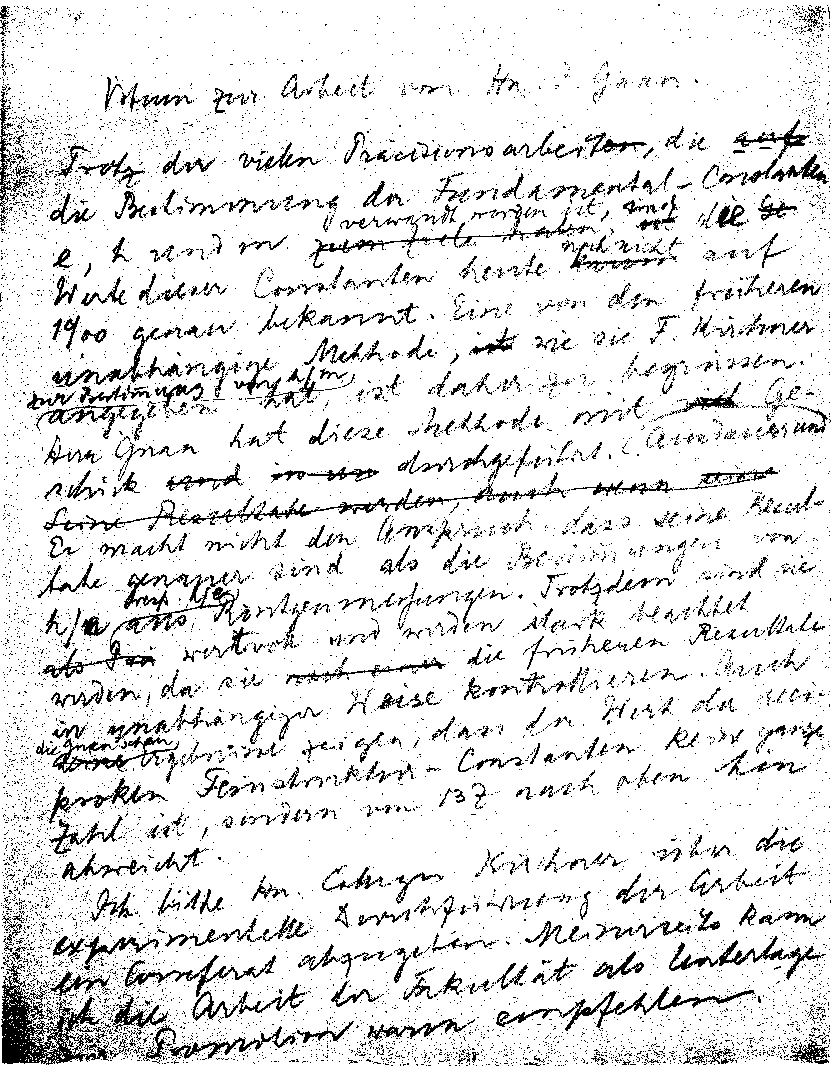 Votum zur Arbeit von Hn. Gnan.
Trotz der vielen Präcisionsarbeiten, die auf
die Bestimmung der Fundamental-Constanten
verwandt worden ist, sind
e, h und m zum Ziele haben, ist die Ge
noch nicht
Werte dieser Constanten heute kaum auf
1%00 genau bekannt. Eine von den früheren
unabhängige Methode, ist wie sie F. Kirchner
zur Bestimmung von h/m
angegeben hat, ist daher zu begrüssen.
Herr Gnan hat diese Methode mit viel Ge-
schick und in un durchgeführt. (Ausdauer und
Seine Resultate werden, auch wenn seine
Er macht nicht den Anspruch, dass seine Resul-
tate genauer sind als die Bestimmungen von
besp. h/e
h/e aus Röntgenmessungen. Trotzdem sind sie
als wertvoll und werden stark beachtet
werden, da sie nach einer die früheren Resultate
in unabhängiger Weise kontrollieren. Auch
die Gnan'schen
seine Ergebnisse zeigen, dass der Wert der reci-
proken Feinstruktur-Constanten keine ganze
Zahl ist, sondern von 137 nach oben hin
abweicht.
Ich bitte Hn. Collegen Kirchner über die
experimentelle Durchführung der Arbeit
ein Correferat abzugeben. Meinerseits kann
ich die Arbeit der Fakultät als Unterlage
zur Promotion warm empfehlen.